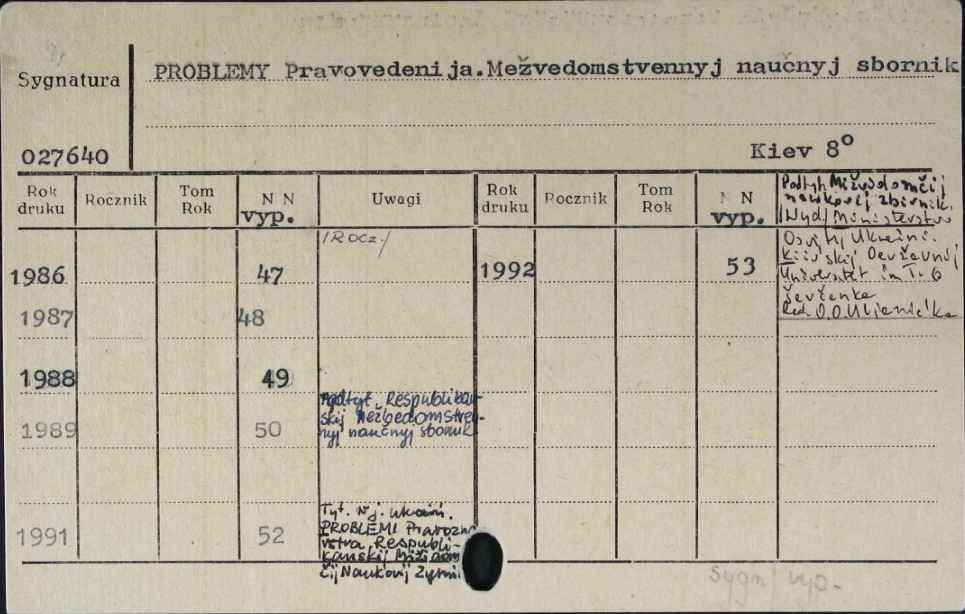 Sygnatura
PROBLEMY Pravovedenija.Mežvedomstvennyj naučnyj sbornik
027640
Kiev 8°
Rok druku Rocznik Tom Rok N N vyp. Uwagi Rok druku Rocznik Tom Rok N N vyp.
Podtyt. Mižvidomčij
naukovij zbirnik.
/Wyd/ Ministerstvo
Osvity Ukraini.
Kiivśkij Deržavnij
Universitet im T. G
Ševčenka
Red. O.O.
/Rocz./
1986 47 1992 53
1987 48
1988 49
Podtyt. Respublikan-
skij Mežvedomstven-
nyj naučnyj sbornik
1989 50
Tyt. w j. ukraiń.
PROBLEMI Pravozna
vstva. Respubli-
kanskij Mižvidom
čij Naukovij
1991 52
Sygn/ vyp.